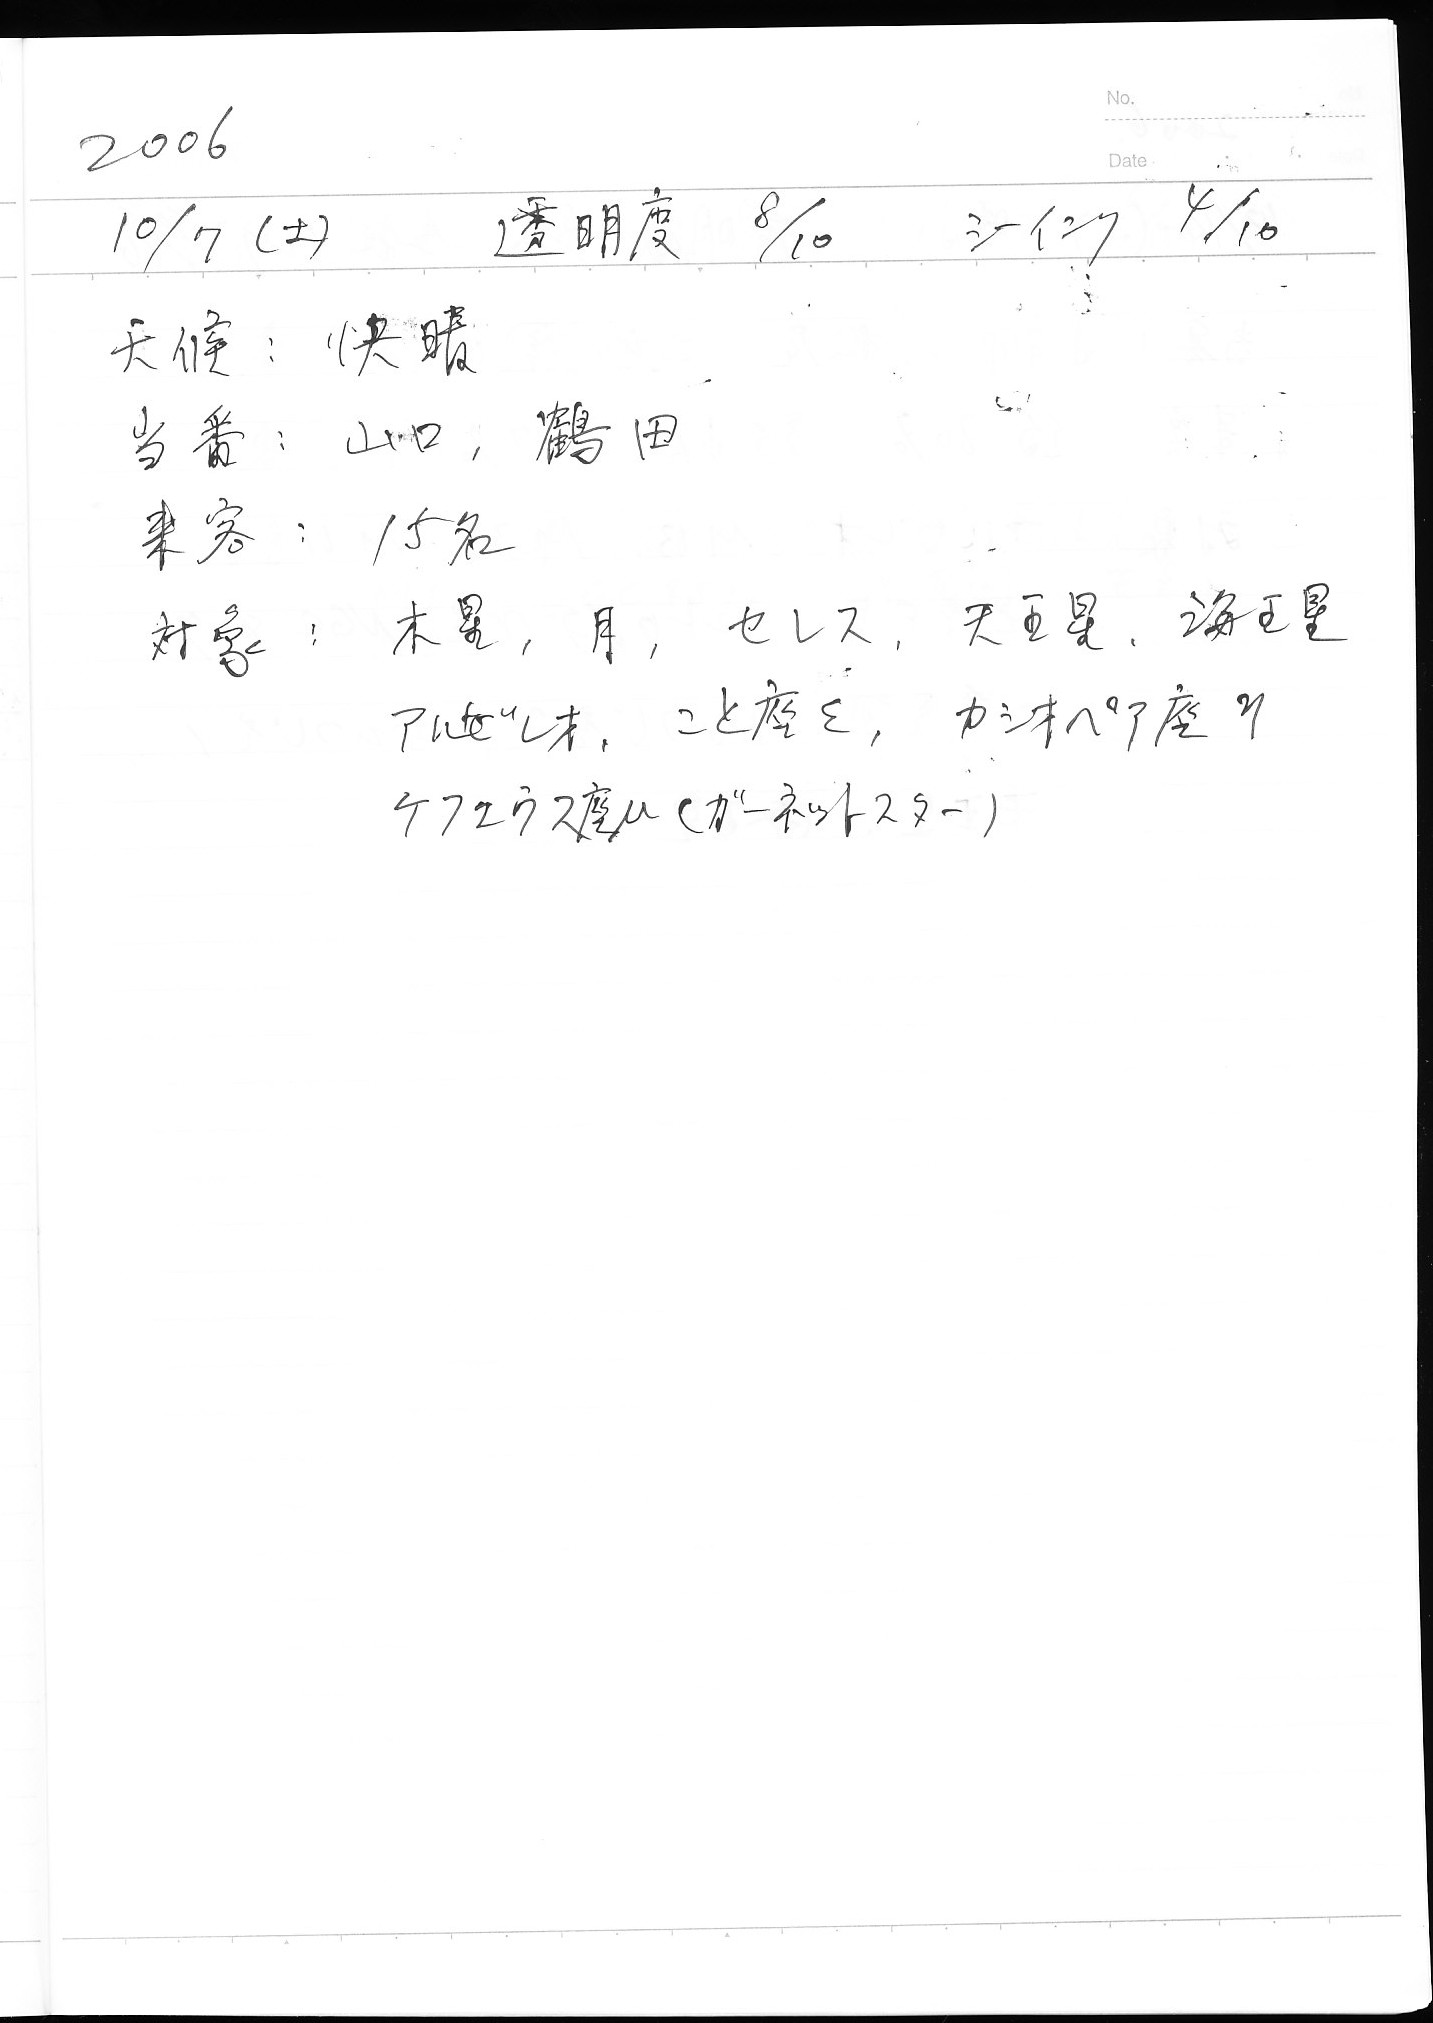 No.
2006
Date
10/7 (土) 透明度 8/10 シーイング 4/10
天候: 快晴
当番: 山口, 鶴田
来客: 15名
対象: 木星, 月, セレス, 天王星, 海王星
アルビレオ, こと座ε, カシオペア座η
ケフェウス座μ (ガーネットスター)